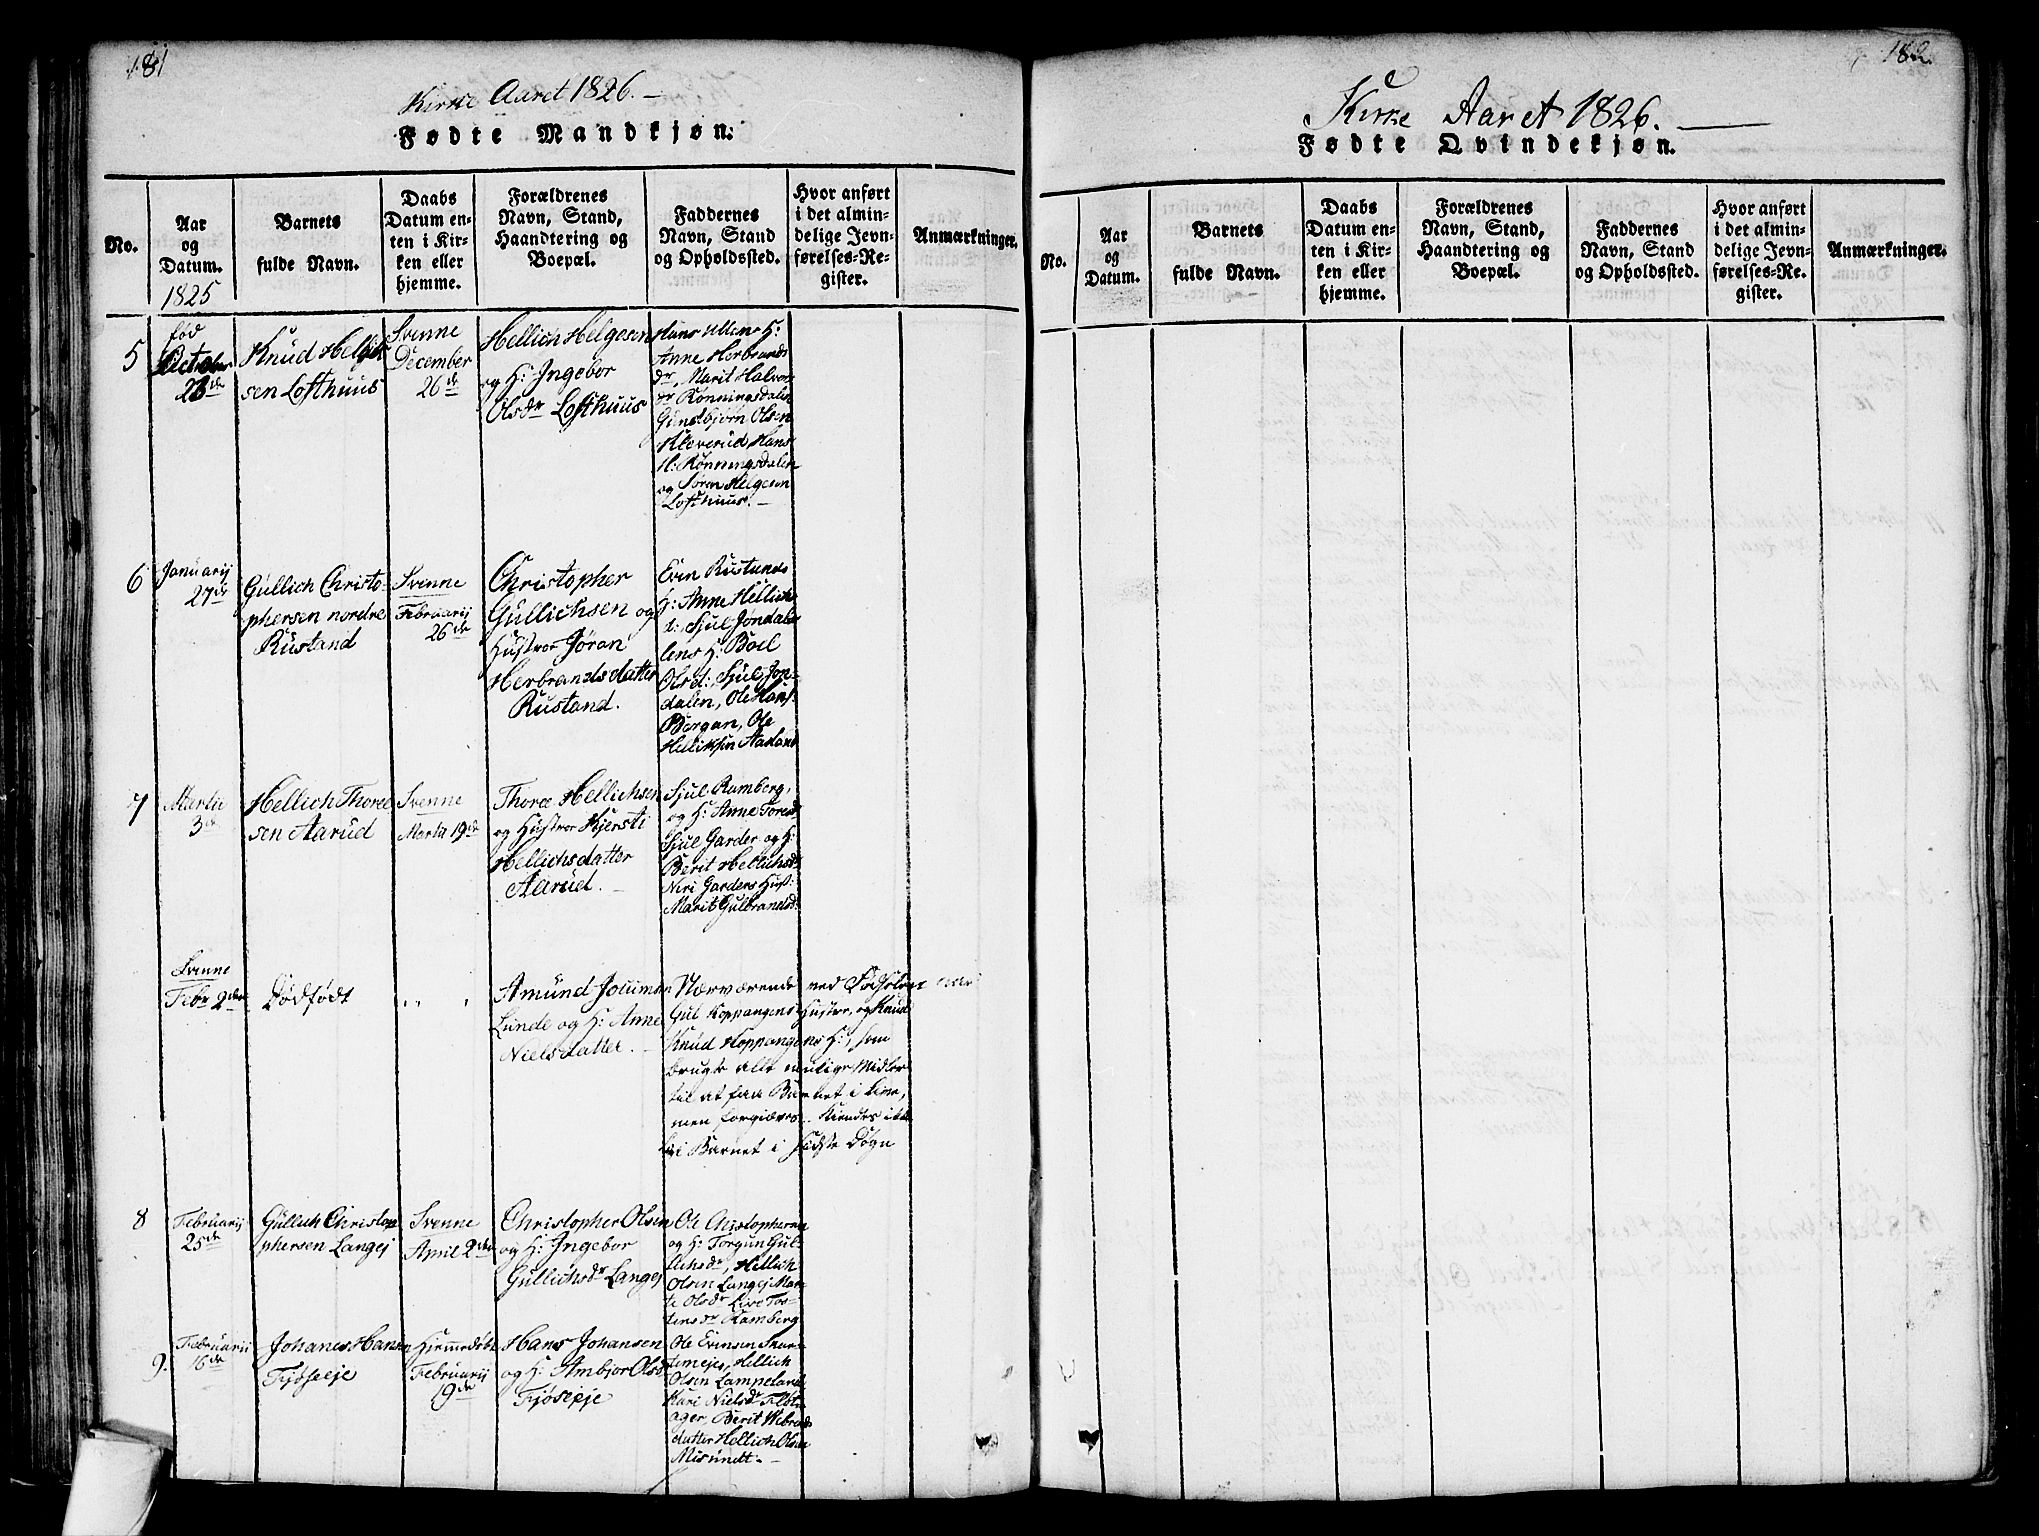 181
Kirke Aaret 1826.
Fødte Mandkjøn.
No.
Aar
og
Datum.
1825
Barnets
fulde Navn.
Daabs
Datum en-
ten i Kir-
ken eller
hjemme.
Forældrenes
Navn, Stand,
Haandtering og
Boepæl.
Faddernes
Navn, Stand
og Opholdssted.
Hvor anført
i det almin-
delige Jevn-
førelses-Re-
gister.
Anmærkninger.
5
fød
October
28de
Knud Helgik
sen Lofthuus
Svenne
December
26de
Hellich Helgesen
og H: Ingebor
Olsdr Lofthuus
Hans Ullens H:
Anne Herbrands
dr, Marit Halvors
dr Rønningsdalen
Gunsbjørn Olsen
Kleverud Hans
H: Rønningsdalen
og Søren Helgesen
Lofthuus.
6
Januarij
27de
Gullich Christo-
phersen nordre
Rustand
Svenne
Februarij
26de
Christopher
Gullichsen og
Hustroe Jøran
Herbrandsdatter
Rustand.
Even Rustands
H: Anne Hellich
d:, Sjul Jøndalen
lens H: Boel
Olsd:, Sjul Jon-
dalen, Ole Hans
Bergan, Ole
Helliksen Aasland
7
Martii
3de
Hellich Thore
sen Aarud
Svenne
Martii 19de
Thore Hellichsen
og Hustroe Kjersti
Hellichsdatter
Aarud.
Sjul Ramberg,
og H: Anne Toresd
Sjul Garder og H:
Berit Hellichsd:
Niri Garders Hust:
Marit Gulbrandsd:
Svenne
Febr 2den
Dødfødt
Amund
Lunde og H: Anne
Nielsdatter.
Nærværende ved Fødselen vare
Gul Koppangens Hustroe, og Knud
Knud Koppangens H:, som
brugte alle mulige Midler
til at faae Barnet i Live,
men forgiæves. Kiendes ikke
Liv i Barnet i sidste Døgn
8
Februarij
25de
Gullich Christop
phersen Langej
Svenne
April 2den
Christopher Olsen
og H: Ingebor
Gullichsdr Langej
Ole Christophersen
og H: Torgun Gul-
lichsdr, Hellich
Olsen Langej Mar-
te Olsdr Live Tos-
tensdr Ramberg
9.
Februarij
16de
Johanes Hansen
Fjøseje
Hjemmedøbt
Februarij
19de
Hans Johansen
og H: Ambjor Olsd
Fjøseeje
Ole Evensen
Hellich
Olsen Lampeland
Kari Nielsdr
ager, Berit Webrands
datter Hellich Olsen
Misundt.
182.
Kirke Aaret 1826.
Fødte Qvindekjøn.
No.
Aar
og
Datum.
Barnets
fulde Navn.
Daabs
Datum en-
ten i Kir-
ken eller
hjemme.
Forældrenes
Navn, Stand,
Haandtering og
Boepæl.
Faddernes
Navn, Stand
og Opholdssted.
Hvor anført
i det almin-
delige Jevn-
førelses-Re-
gister.
Anmærkninger.